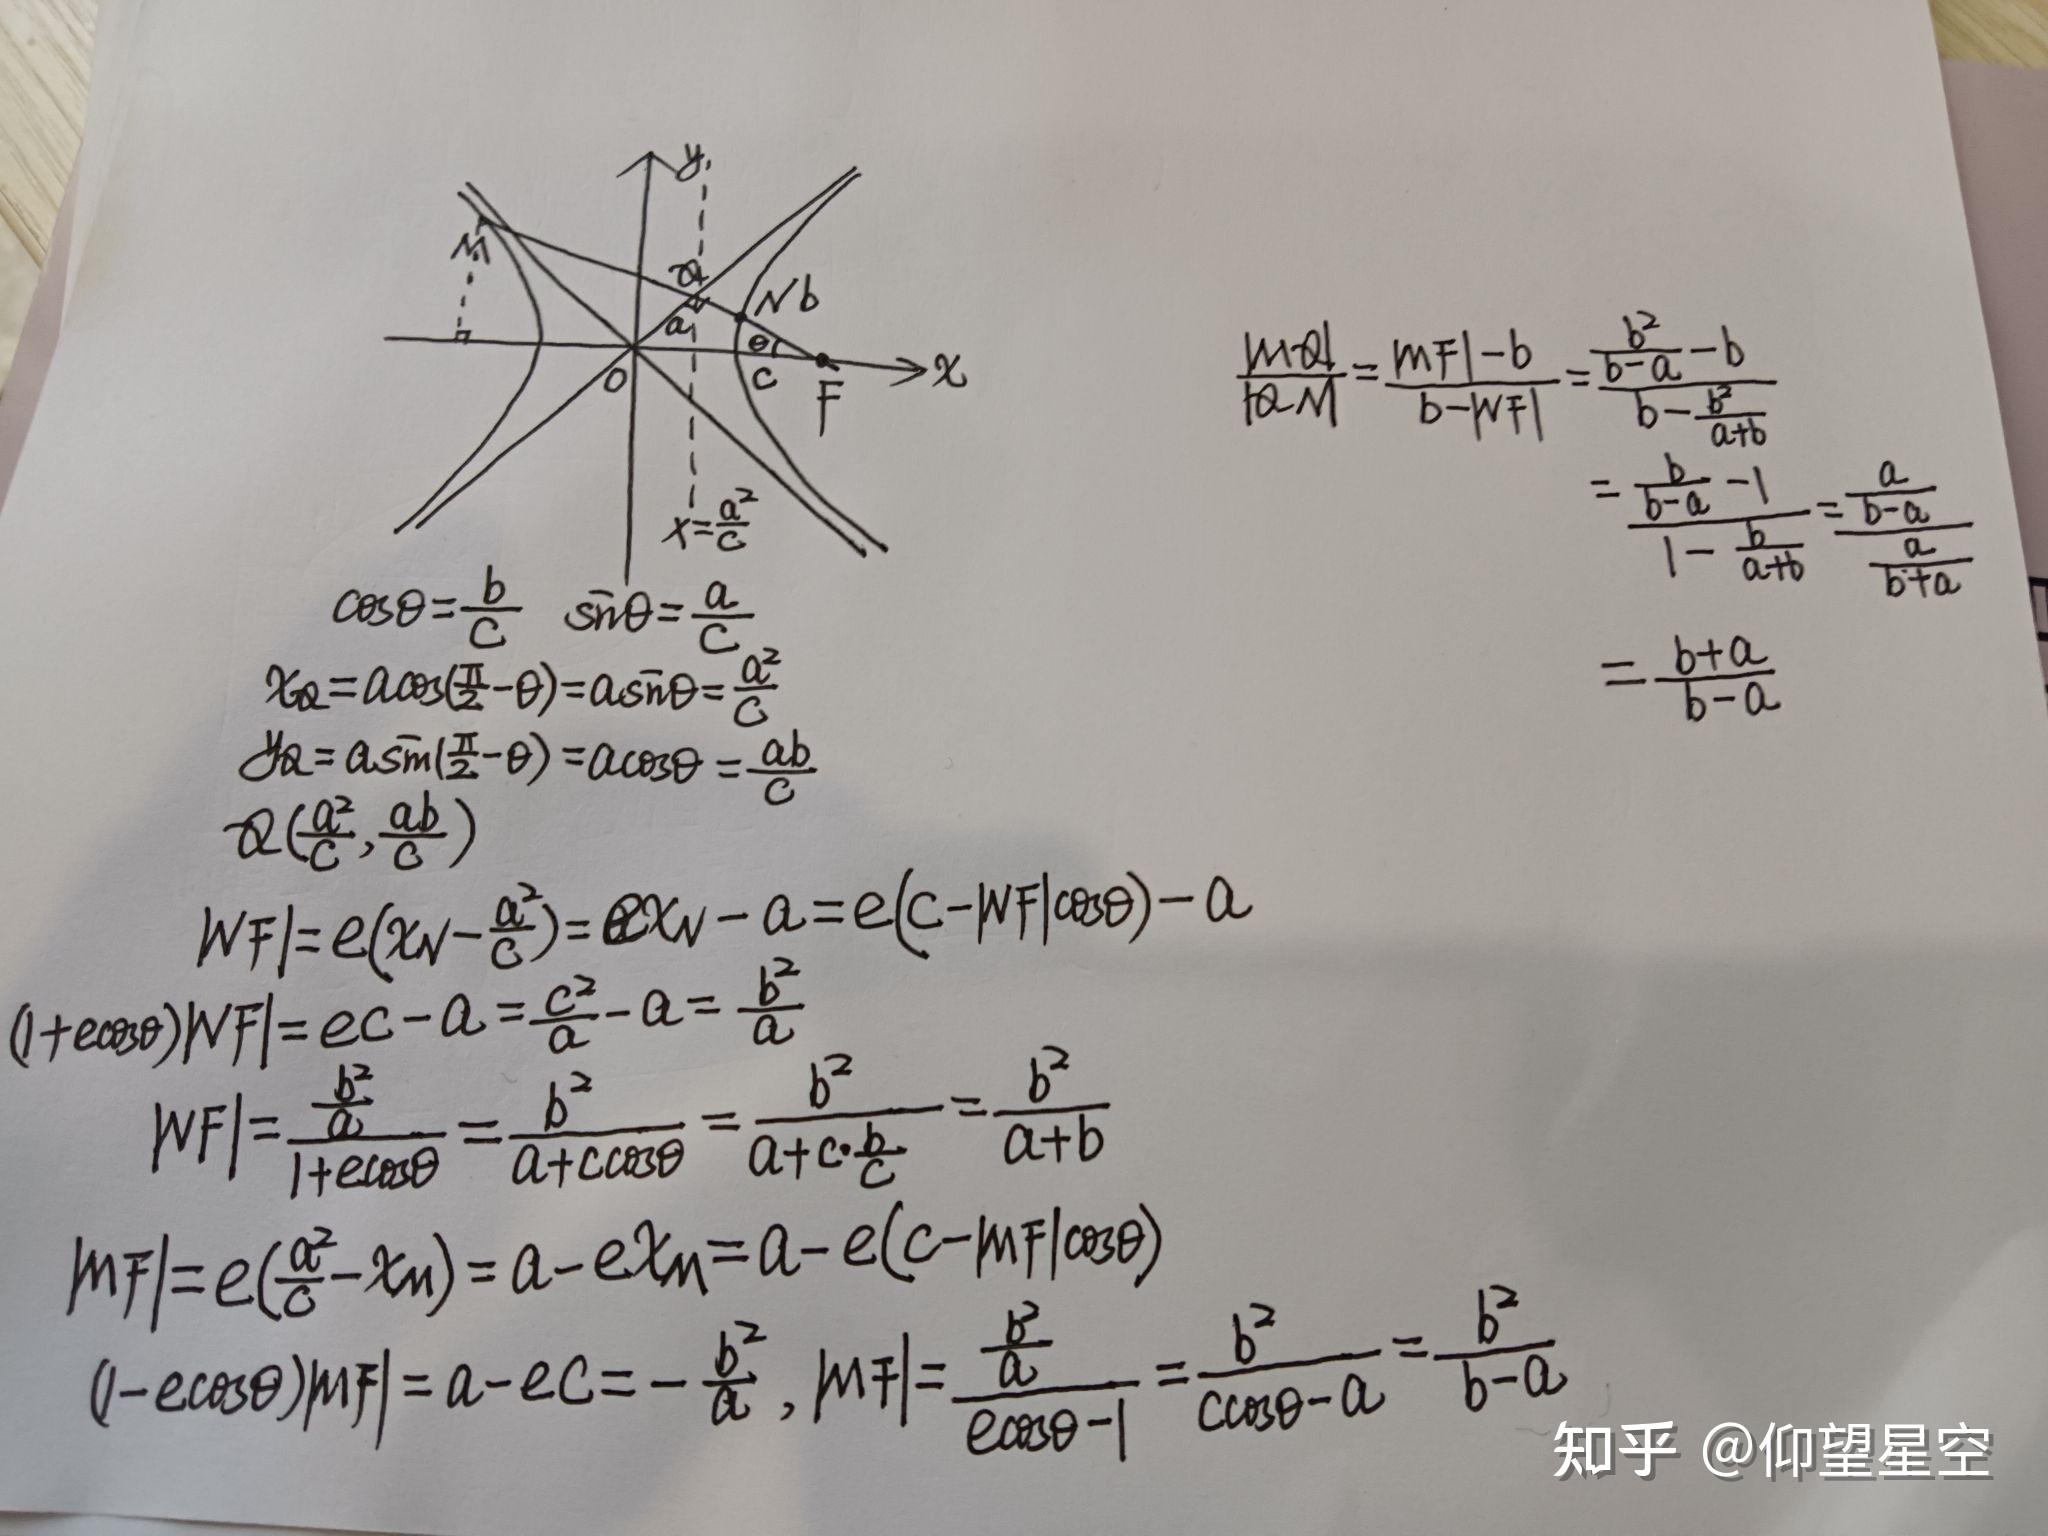 y
M
Q
N b
a
θ
O
c
F
x
x=a²/c
cosθ=b/c sinθ=a/c
x_Q=acos(π/2-θ)=asinθ=a²/c
y_Q=asin(π/2-θ)=acosθ=ab/c
Q(a²/c,ab/c)
|NF|=e(x_N-a²/c)=ex_N-a=e(c-|NF|cosθ)-a
(1+ecosθ)|NF|=ec-a=c²/a-a=b²/a
|NF|=(b²/a)/(1+ecosθ)=b²/(a+ccosθ)=b²/(a+c·b/c)=b²/(a+b)
|MF|=e(a²/c-x_M)=a-ex_M=a-e(c-|MF|cosθ)
(1-ecosθ)|MF|=a-ec=-b²/a,|MF|=(b²/a)/(ecosθ-1)=b²/(ccosθ-a)=b²/(b-a)
|MQ|/|QN|=(|MF|-b)/(b-|NF|)=(b²/(b-a)-b)/(b-b²/(a+b))
=(b/(b-a)-1)/(1-b/(a+b))=(a/(b-a))/(a/(b+a))
=(b+a)/(b-a)
知乎 @仰望星空